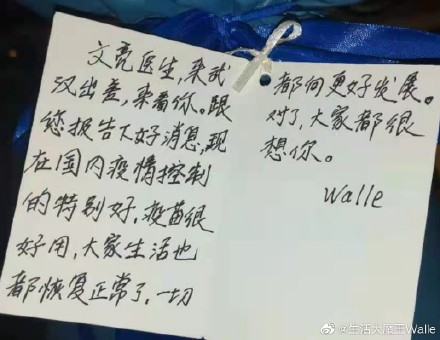 文亮医生,来武
汉出差,来看你。跟
您报告大好消息,现
在国内疫情控制
的特别好,疫苗很
好用,大家生活也
都恢复正常了,一切
都向更好发展。
对了,大家都很
想你。
Walle
@生活大魔王Walle